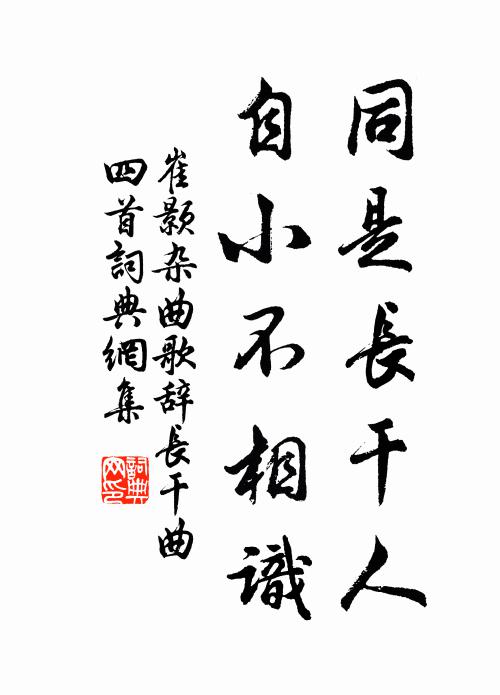 同是長干人
自小不相識
崔顥杂曲歌辞長干曲
四首詞典網集
詞典
网印